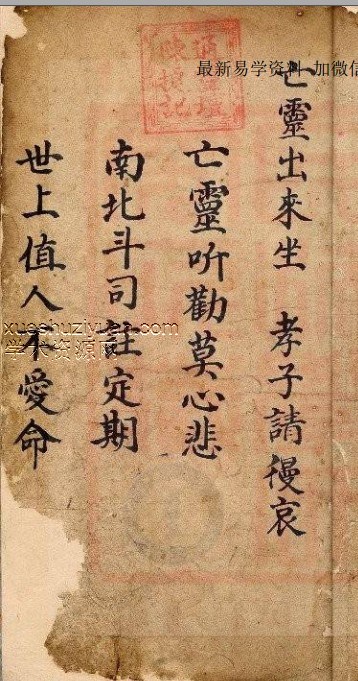 最新易学资料 加微信
亡靈出來坐 孝子請哀
亡靈听勸莫心悲
南北斗司註定期
世上值人不愛命
xueshuziyuan.com
学术资源网